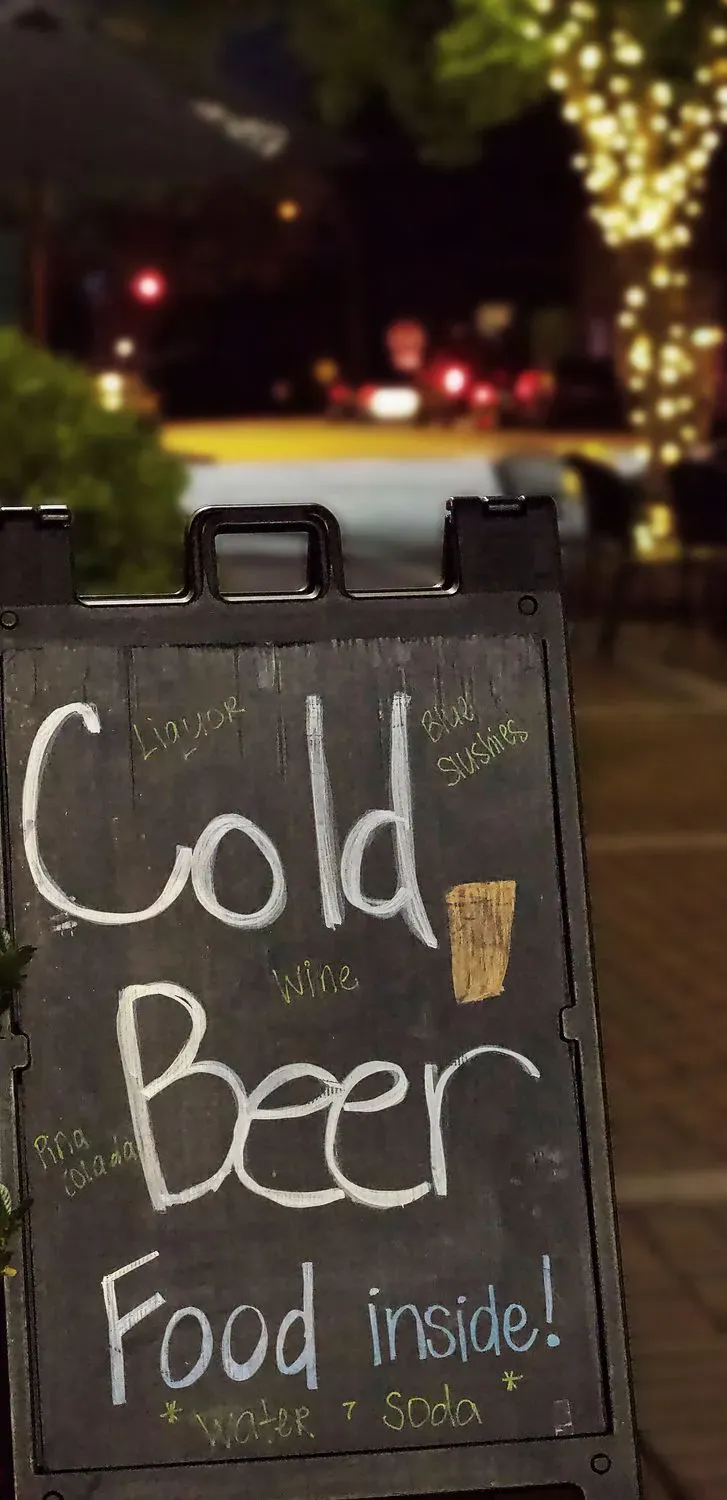 Liquor
Blue
slushies
Cold
Wine
Beer
Piña
colada
Food inside!
* Water , Soda *